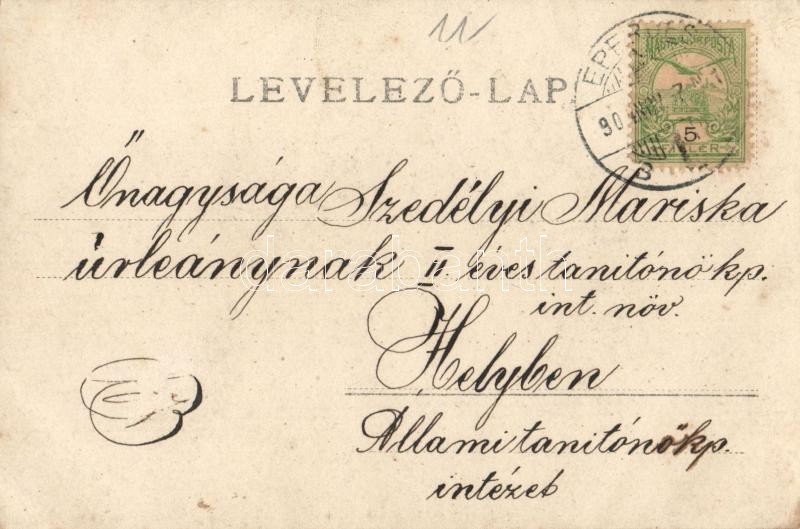 11
LEVELEZŐ-LAP
EPERJES
MAGYAR KIR. POSTA
5
FILLÉR
B
Őnagysága Szedélyi Mariska
úrleánynak II. éves tanitónőkp.
int. növ.
Helyben
Állami tanitónőkp.
intézet
darabanth